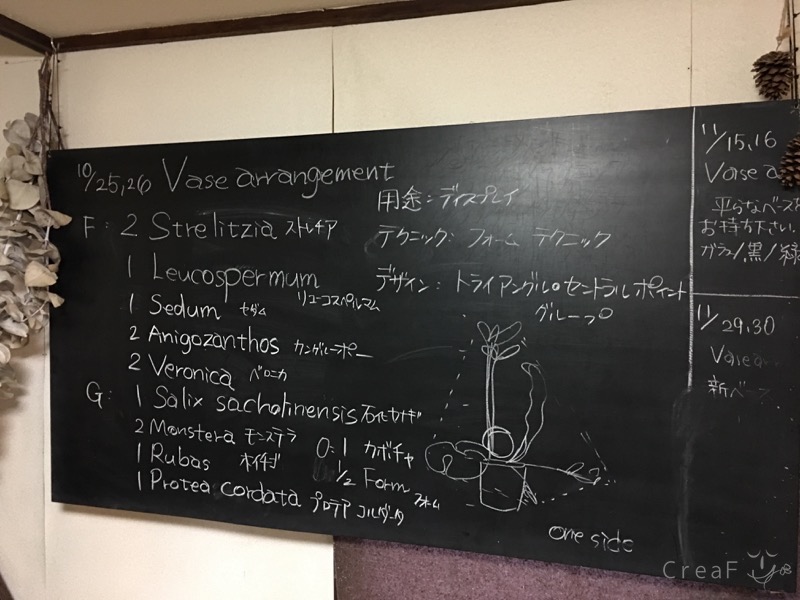 10/25,26 Vase arrangement
用途:ディスプレイ
F: 2 Strelitzia ストレチア
テクニック: フォーム テクニック
1 Leucospermum
リューコスペルマム
デザイン: トライアングル。セントラルポイント
グループ
1 Sedum セダム
2 Anigozanthos カンガルーポー
2 Veronica ベロニカ
G: 1 Salix sachalinensis 石化ヤナギ
2 Monstera モンステラ
1 Rubas 木イチゴ
1 Protea cordata プロテア コルダータ
O=1 カボチャ
1/2 Form フォーム
one side
11/15,16
Vase a
平らなベース
お持ち下さい.
ガラス/黒/緑
11/29,30
Vase a
新ベース
CreaF